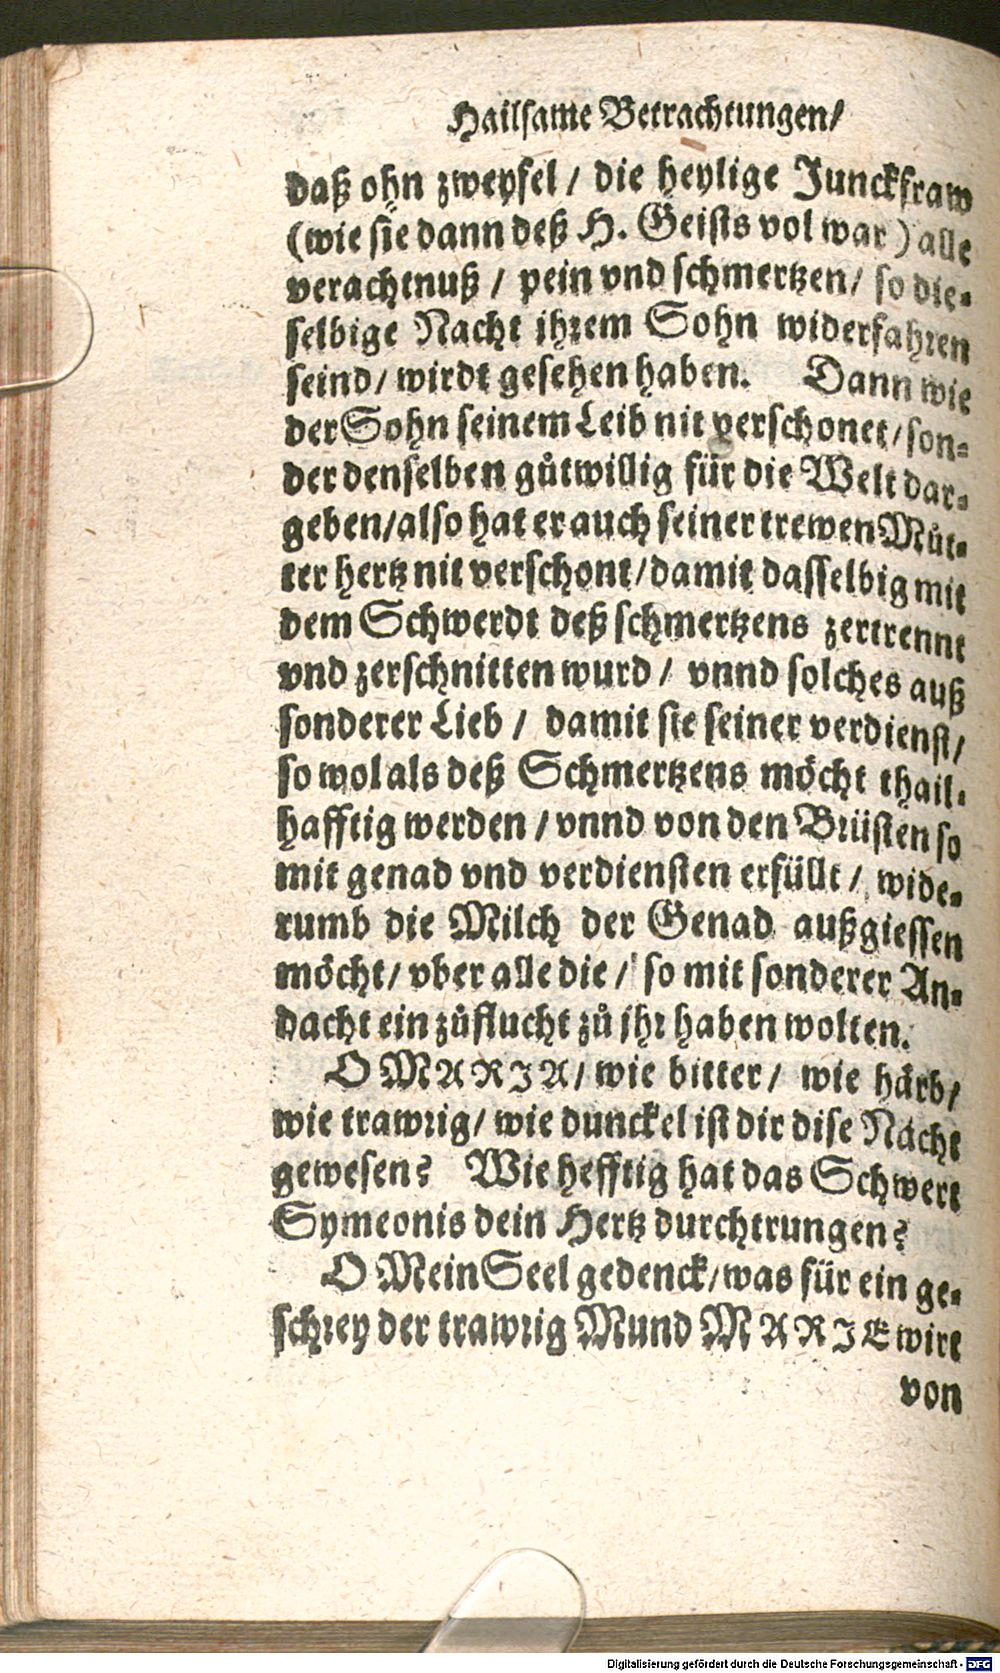 Hailsame Betrachtungen/
daß ohn zweyfel / die heylige Junckfraw
(wie sie dann deß H. Geists vol war) alle
verachtnuß / pein vnd schmertzen / so die-
selbige Nacht jhrem Sohn widerfahren
seind / wirdt gesehen haben. Dann wie
der Sohn seinem Leib nit verschonet / son-
der denselben gůtwillig für die Welt dar-
geben / also hat er auch seiner trewen Můt-
ter hertz nit verschont / damit dasselbig mit
dem Schwerdt deß schmertzens zertrennt
vnd zerschnitten wurd / vnnd solches auß
sonderer Lieb / damit sie seiner verdienst /
so wol als deß Schmertzens möcht thail-
hafftig werden / vnnd von den Brüsten so
mit genad vnd verdiensten erfüllt / wide-
rumb die Milch der Genad außgiessen
möcht / vber alle die / so mit sonderer An-
dacht ein zůflucht zů jhr haben wolten.
O MARJA / wie bitter / wie härb /
wie trawrig / wie dunckel ist dir dise Nacht
gewesen? Wie hefftig hat das Schwert
Symeonis dein Hertz durchtrungen?
O Mein Seel gedenck / was für ein ge-
schrey der trawrig Mund MARJE wirt
von
Digitalisierung gefördert durch die Deutsche Forschungsgemeinschaft - DFG